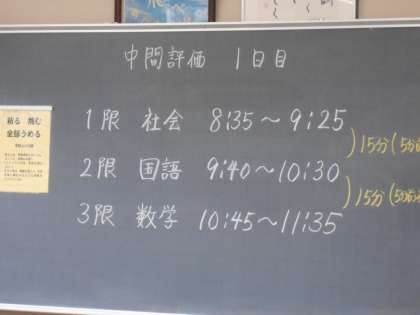 中間評価 1日目
1限 社会 8:35～9:25
15分(5分前
2限 国語 9:40～10:30
15分(5分前
3限 数学 10:45～11:35
粘る 挑む
全部うめる